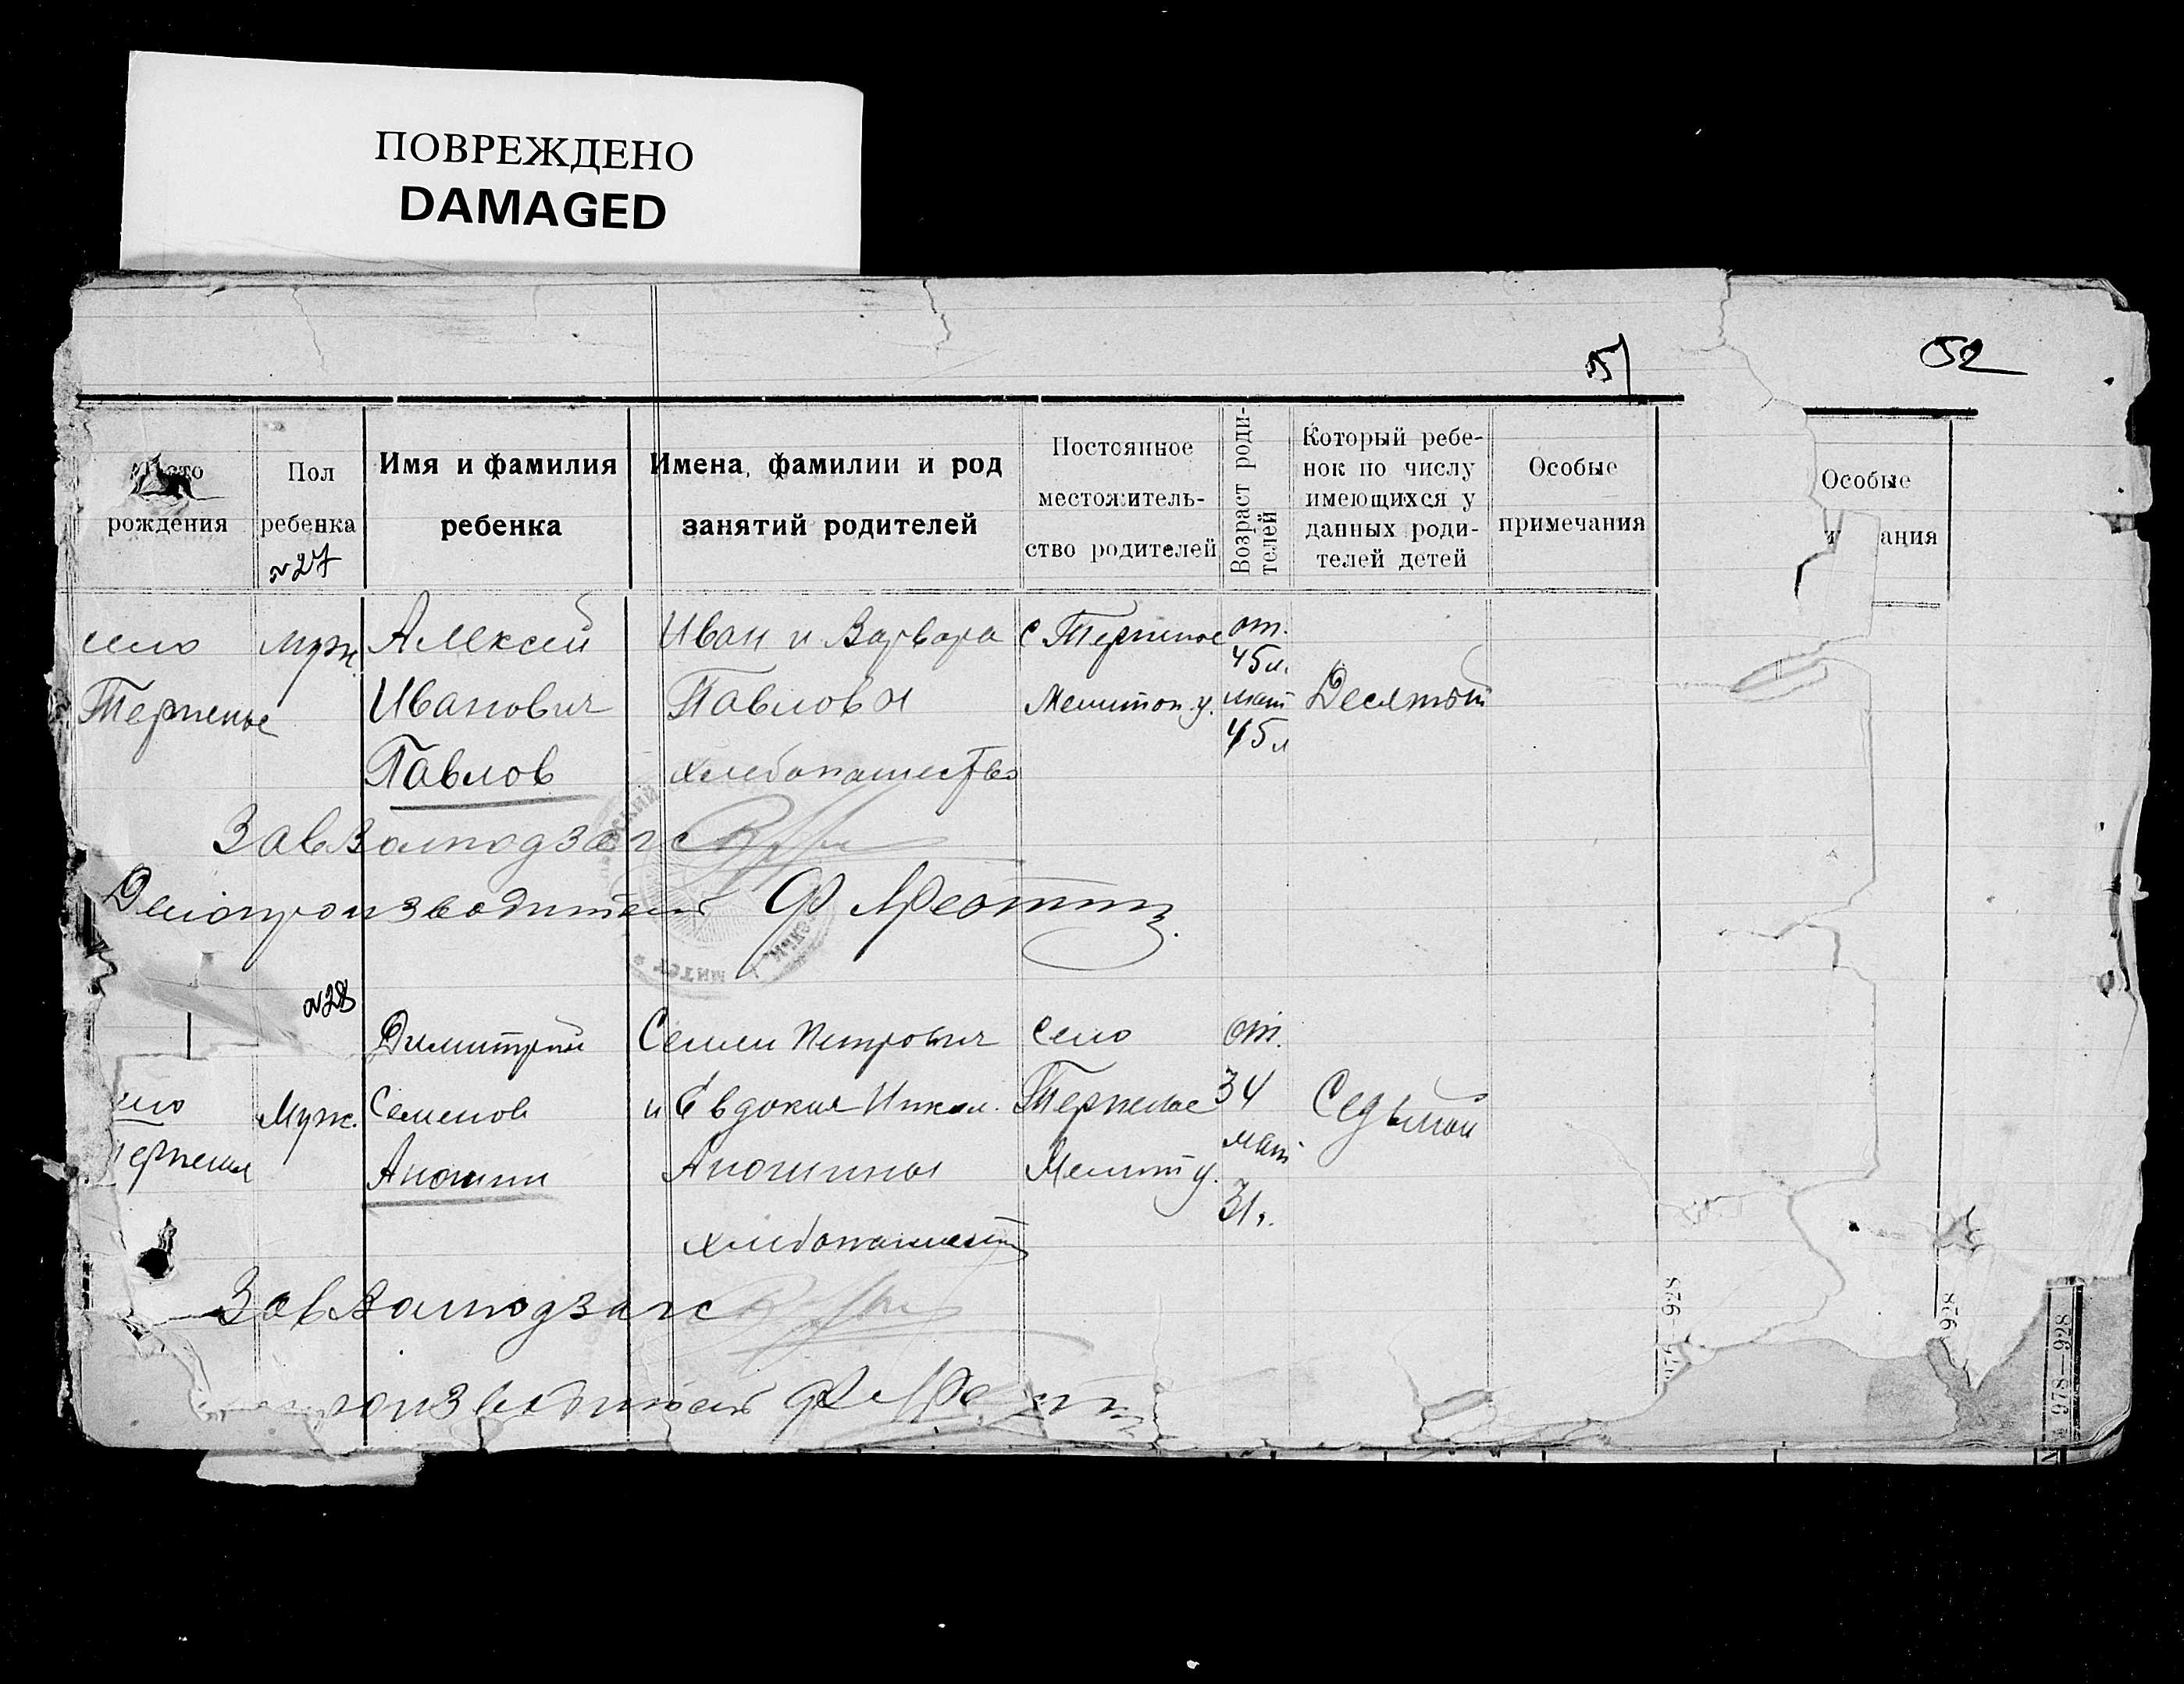 ПОВРЕЖДЕНО
DAMAGED
51
52
рождения
Пол
ребенка
Имя и фамилия
ребенка
Имена, фамилии и род
занятий родителей
Постоянное
местожитель-
ство родителей
Возраст роди-
телей
Который ребе-
нок по числу
имеющихся у
данных роди-
телей детей
Особые
примечания
Особые
ания
№27
село
Терпенье
муж
Алексей
Иванович
Павлов
Иван и Варвара
Павловы
хлебопашество
с Терпение
Мелитоп. у.
от.
45 л.
мат
45 л
Десятый
Зав Волподзагс
Делопроизводитель Ф
№28
Муж.
Димитрий
Семенов
Анюшин
Семен Петрович
и Евдокия Никол.
Анюшины
хлебопашест
село
Терпение
Мелит у.
от.
34
мат
31.
Седьмой
Зав Волподзагс
роизводитель Ф
928
928
978—928